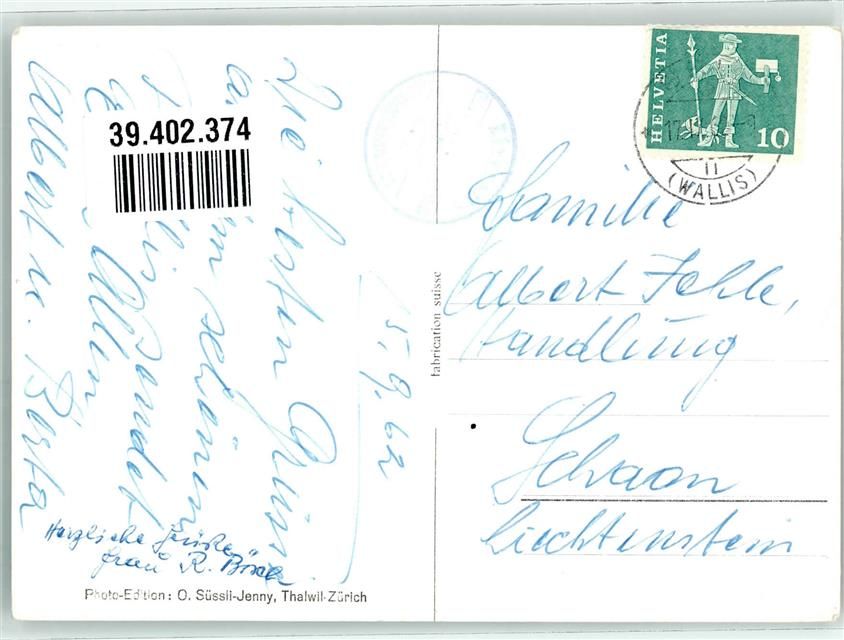 15.9.62
Die besten Grüsse
schönen
sendet
Allen
Albert u. Berta
Herzliche Grüsse
Frau R.
39.402.374
Photo-Edition: O. Süssli-Jenny, Thalwil-Zürich
fabrication suisse
HELVETIA
10
11
(WALLIS)
Familie
Albert Jehle,
Handlung
Schaan
Liechtenstein